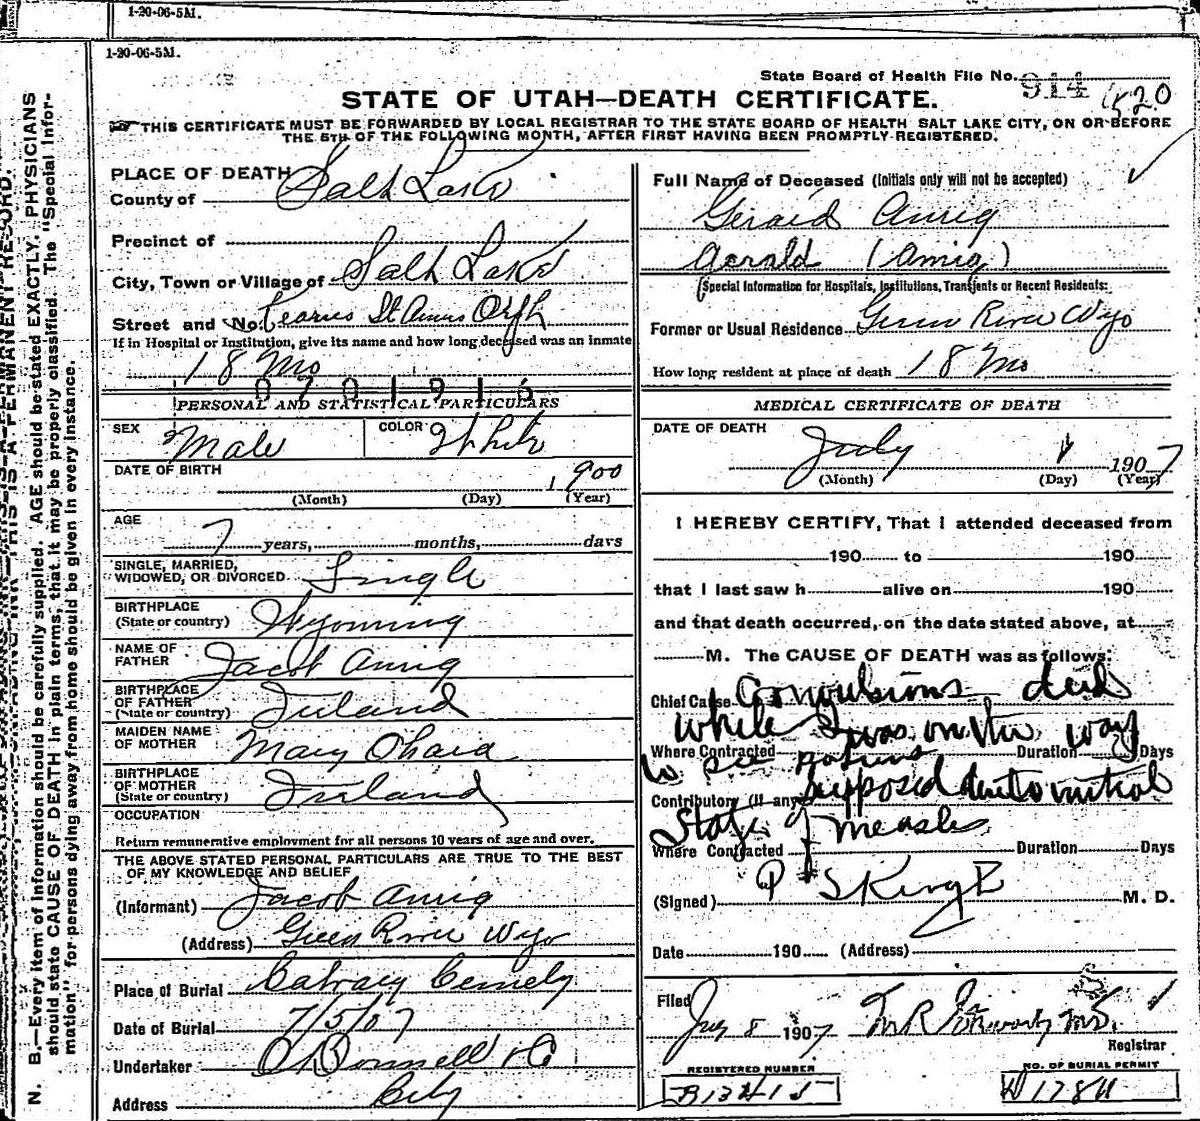 1-20-06-5M.
1-20-06-5M.
State Board of Health File No. 914 1820
STATE OF UTAH—DEATH CERTIFICATE.
THIS CERTIFICATE MUST BE FORWARDED BY LOCAL REGISTRAR TO THE STATE BOARD OF HEALTH SALT LAKE CITY, ON OR BEFORE
THE 5TH OF THE FOLLOWING MONTH, AFTER FIRST HAVING BEEN PROMPTLY REGISTERED.
N. B.—Every item of information should be carefully supplied. AGE should be stated EXACTLY. PHYSICIANS
should state CAUSE OF DEATH in plain terms, that it may be properly classified. The "Special Infor-
mation" for persons dying away from home should be given in every instance.
PLACE OF DEATH
County of Salt Lake
Precinct of
City, Town or Village of Salt Lake
Street and No. Kearns St Anns Orph
If in Hospital or Institution, give its name and how long deceased was an inmate
18 Mo
PERSONAL AND STATISTICAL PARTICULARS
SEX Male COLOR White
DATE OF BIRTH 1900
(Month) (Day) (Year)
AGE
7 years, months, days
SINGLE, MARRIED,
WIDOWED, OR DIVORCED Single
BIRTHPLACE
(State or country) Wyoming
NAME OF
FATHER Jacob Amig
BIRTHPLACE
OF FATHER
(State or country) Ireland
MAIDEN NAME
OF MOTHER Mary Ohara
BIRTHPLACE
OF MOTHER
(State or country) Ireland
OCCUPATION
Return remunerative employment for all persons 10 years of age and over.
THE ABOVE STATED PERSONAL PARTICULARS ARE TRUE TO THE BEST
OF MY KNOWLEDGE AND BELIEF
(Informant) Jacob Amig
(Address) Green River Wyo
Place of Burial Calvary Cemety
Date of Burial 7/5/07
Undertaker O'Donnell & Co
Address City
Full Name of Deceased (Initials only will not be accepted)
Gerald Amig
Gerald (Amig)
(Special Information for Hospitals, Institutions, Transients or Recent Residents:
Former or Usual Residence Green River Wyo
How long resident at place of death 18 Mo
MEDICAL CERTIFICATE OF DEATH
DATE OF DEATH
July 1907
(Month) (Day) (Year)
I HEREBY CERTIFY, That I attended deceased from
190 to 190
that I last saw h alive on 190
and that death occurred, on the date stated above, at
M. The CAUSE OF DEATH was as follows:
Chief Cause Convulsions died
while I was on the way
Where Contracted Duration Days
to see patient
Contributory (if any) supposed due to initial
stage of measles
Where Contracted Duration Days
(Signed) M. D.
Date 190 (Address)
Filed July 8 1907
Registrar
REGISTERED NUMBER
B13415
NO. OF BURIAL PERMIT